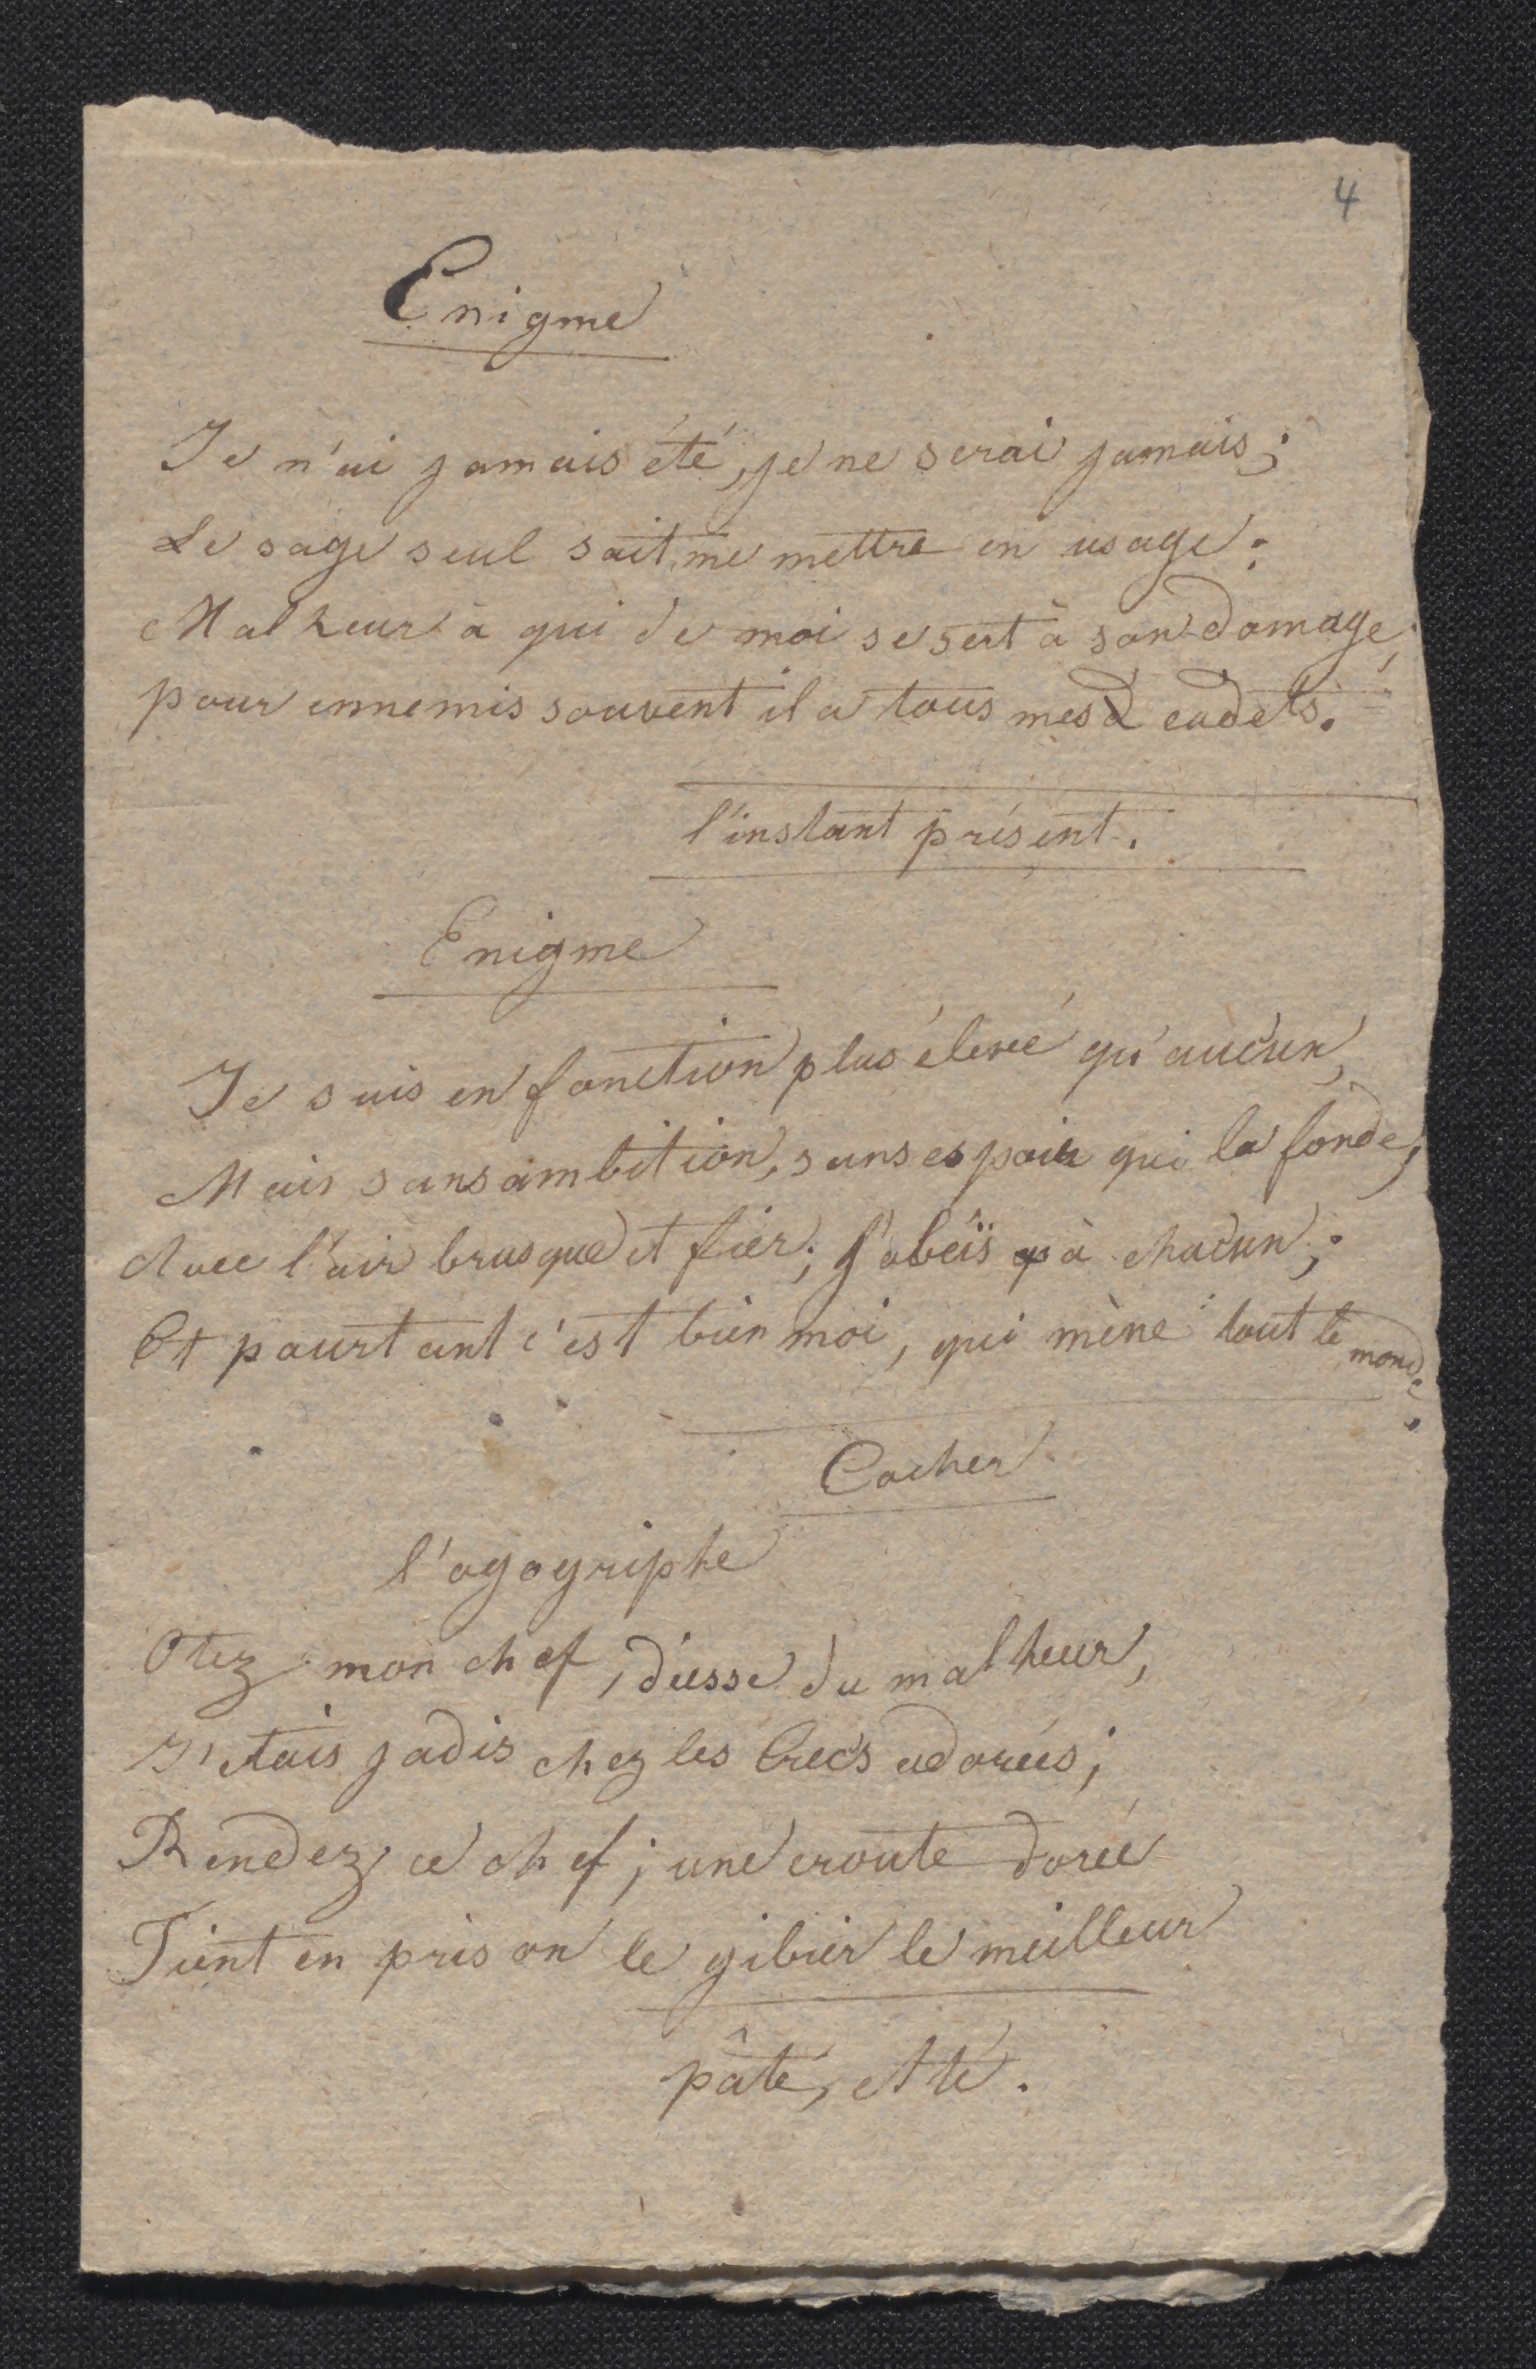 4
Enigme
Je n'ai jamais été, je ne serai jamais;
Le sage seul sait me mettre en usage.
Malheur à qui de moi se sert à son domage,
pour ennemis souvent il a tous mes cadets.
l'instant présent.
Enigme
Je suis en fonction plus élevé qu'aucun,
Mais sans ambition, sans espoir qui la fonde,
Avec l'air brusque et fier; j'obéïs à chacun;
Et pourtant c'est bien moi, qui mène tout le monde.
Cocher
l'ogogriphe
Otez mon chef, déesse du malheur,
J'étais jadis chez les Grecs adorées;
Rendez ce chef; une croute dorée
Tient en prison le gibier le meilleur
pâté, Até.